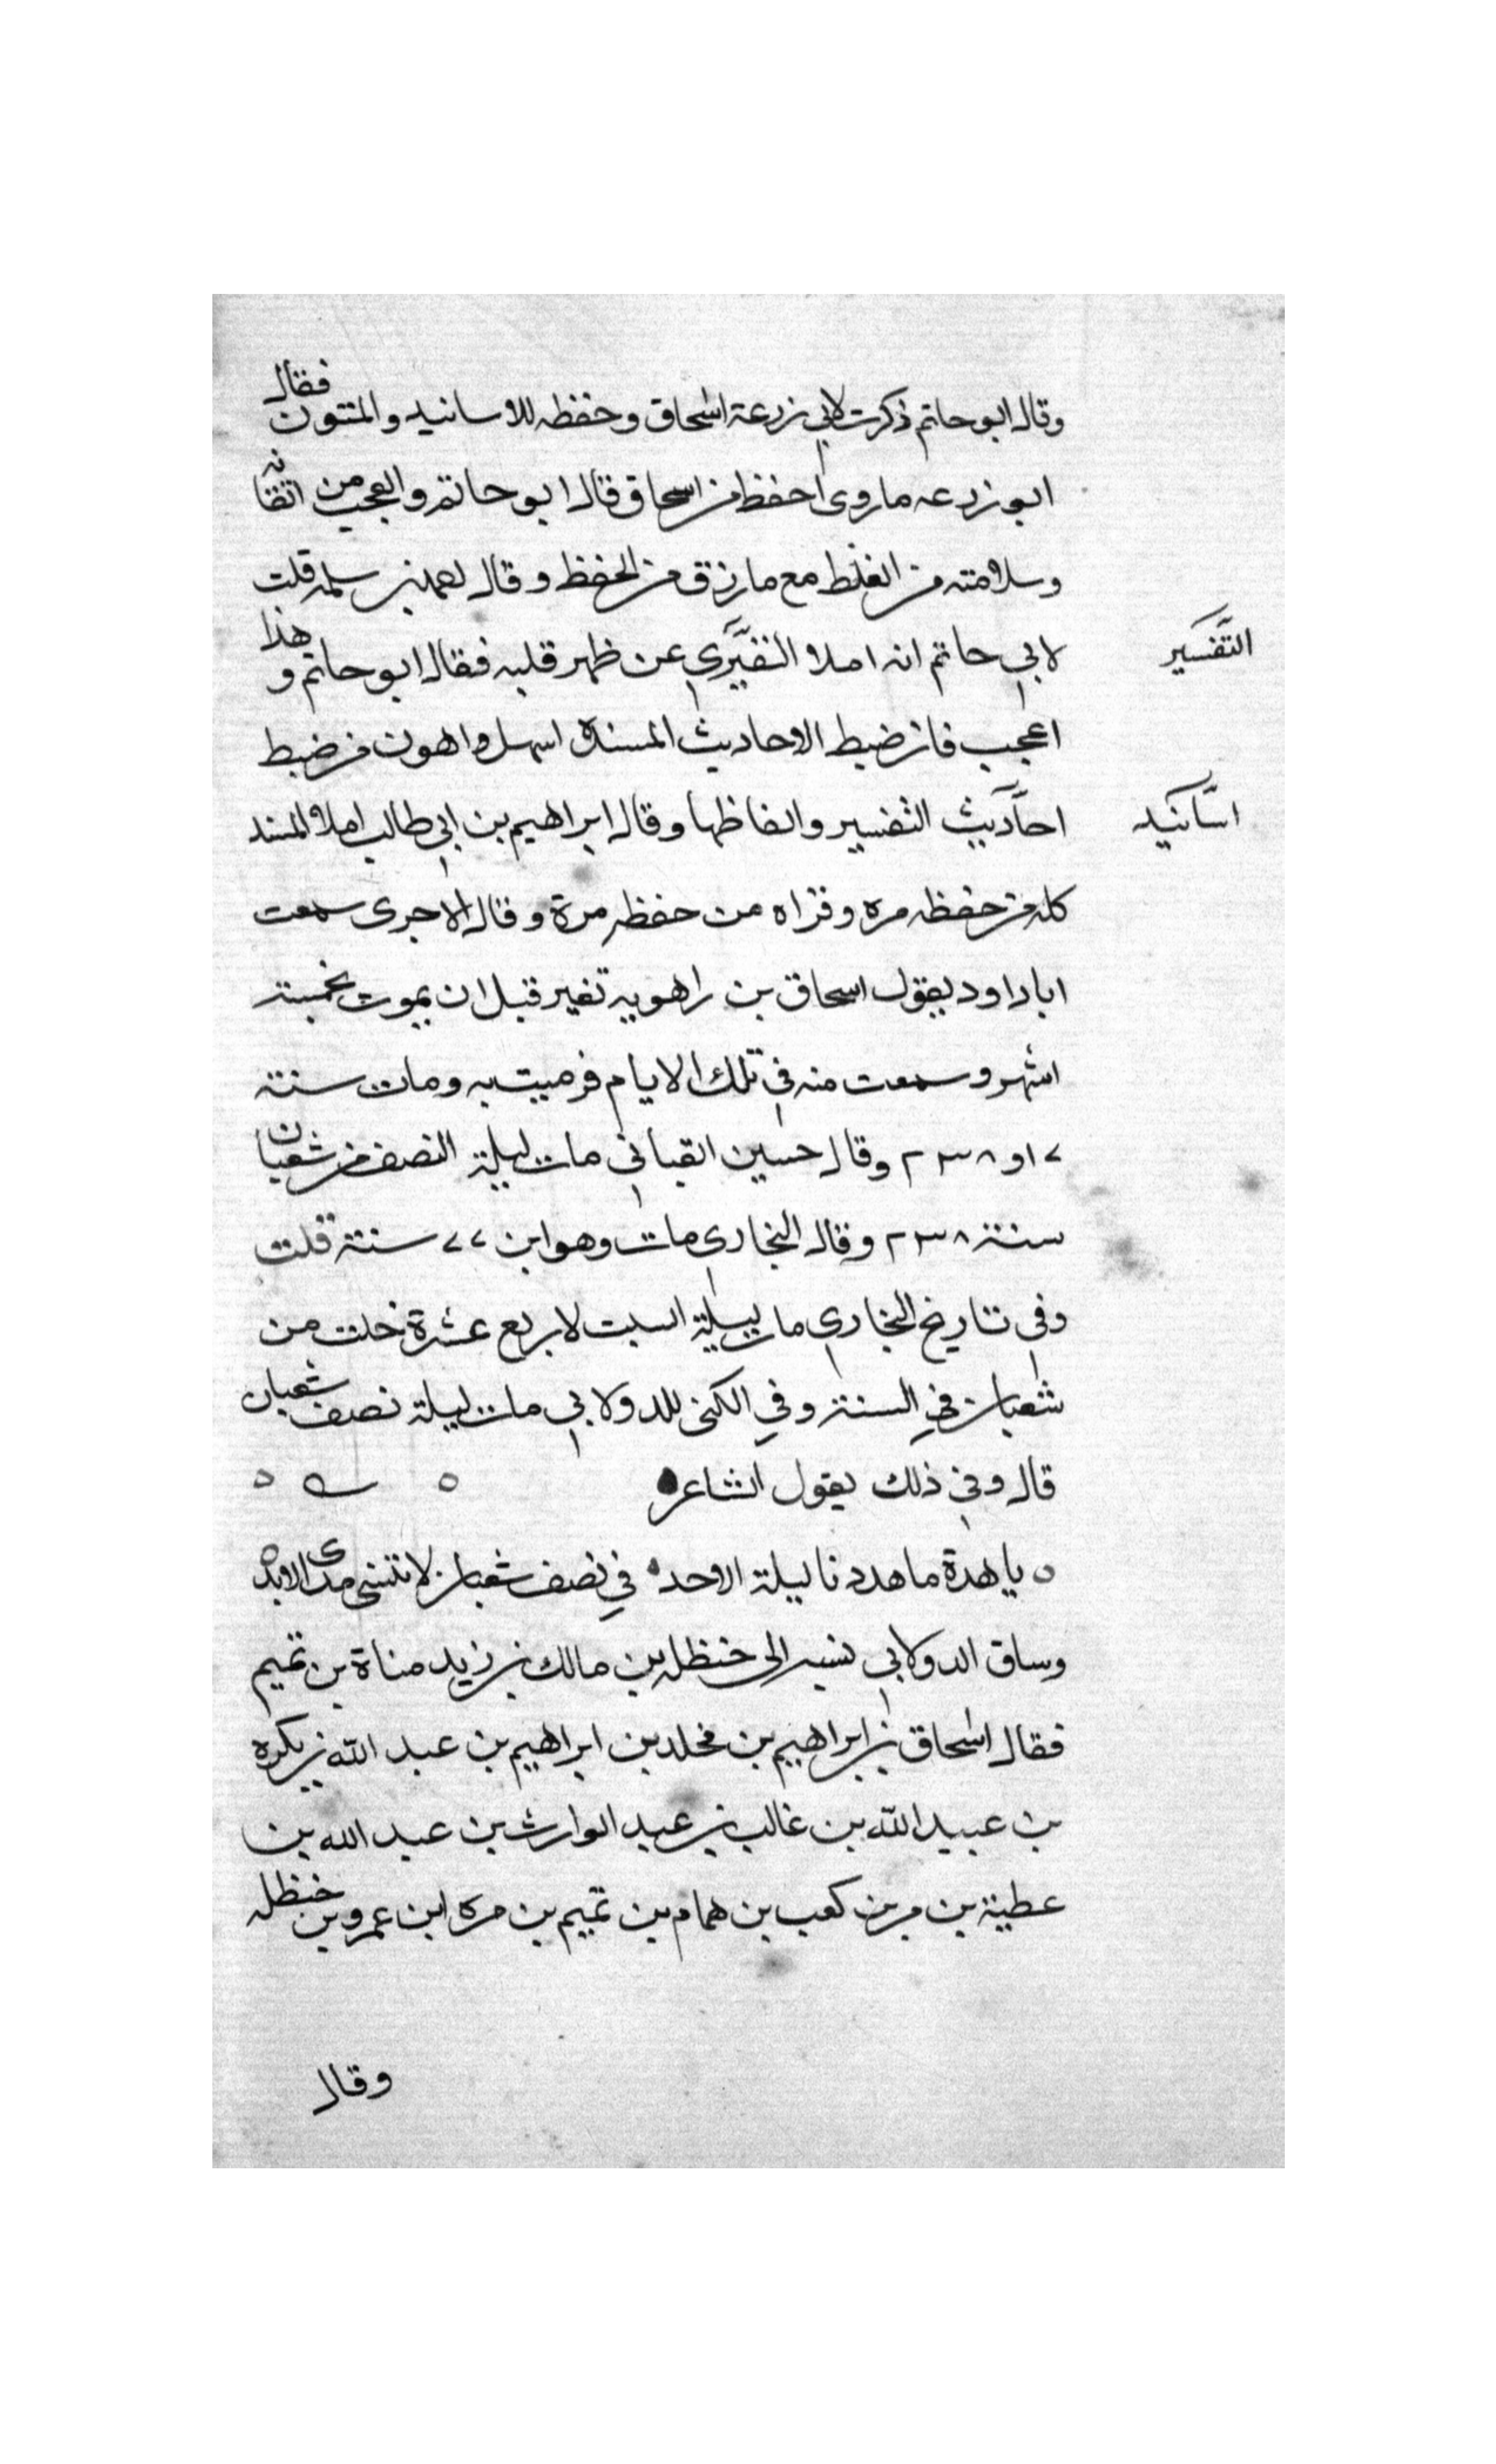 وقال ابو حاتم ذكرت لابي زرعة اسحاق وحفظه للاسانيد والمتون فقال
ابو زرعه ما روى احفظ من اسحاق قال ابو حاتم والعجب من اتقانه
وسلامته من الغلط مع ما رزق من الحفظ وقال احمد بن سلمه قلت
لابي حاتم انه املا التفسير عن ظهر قلبه فقال ابو حاتم وهذا
التفسير
اعجب فان ضبط الاحاديث المسندة اسهل واهون من ضبط
احاديث التفسير والفاظها وقال ابراهيم بن ابي طالب املا المسند
اسانيد
كله من حفظه مره وقراه من حفظه مرة وقال الاجرى سمعت
ابا داود يقول اسحاق بن راهويه تغير قبل ان يموت بخمسة
اشهر وسمعت منه في تلك الايام فرميت به ومات سنة
٧ او ٢٣٨ وقال حسين القباني مات ليلة النصف من شعبان
سنة ٢٣٨ وقال البخارى مات وهو ابن ٧٧ سنة قلت
وفي تاريخ البخاري مات ليلة السبت لاربع عشرة خلت من
شعبان في السنة وفي الكنى للدولابي مات ليلة نصف شعبان
قال وفي ذلك يقول الشاعر
يا هدة ما هددنا ليلة الاحد في نصف شعبان لا تنسى مدى الابد
وساق الدولابي نسبه الى حنظله بن مالك بن زيد مناة بن تميم
فقال اسحاق بن ابراهيم بن مخلد بن ابراهيم بن عبد الله بن بكره
بن عبيد الله بن غالب بن عبد الوارث بن عبد الله بن
عطية بن مر بن كعب بن همام بن تميم بن مره ابن عمرو بن حنظله
وقال